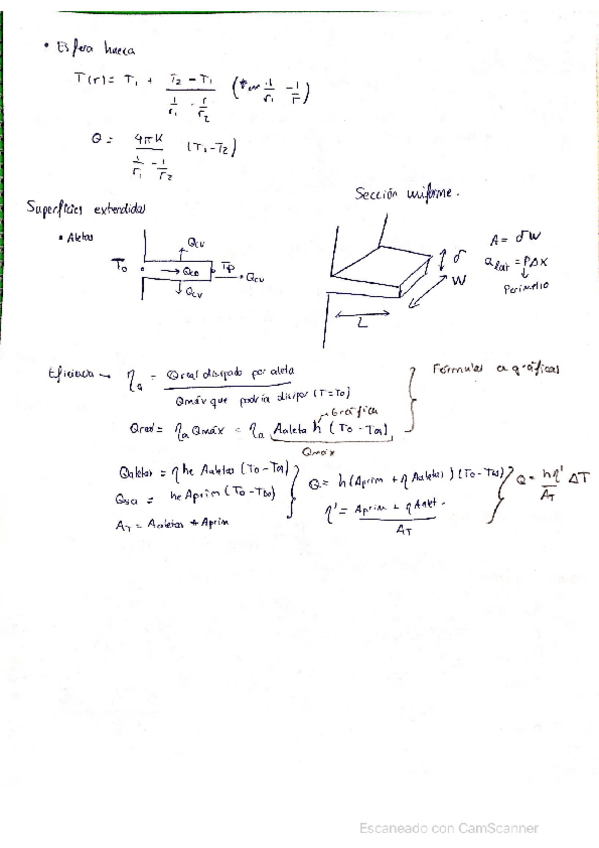 • Esfera hueca
T(r) = T₁ + (T₂ - T₁) / (1/r₁ - 1/r₂) ( 1/r₁ - 1/r )
Q = 4πK / (1/r₁ - 1/r₂) (T₁ - T₂)
Sección uniforme.
Superficies extendidas
• Aletas
Qcv
T₀ Qcd Tp Qcv
Qcv
δ
W
L
A = δW
a lat = PΔX
Perímetro
Eficiencia → ηa = Q real disipado por aleta / Qmáx que podría disipar (T=T₀)
Fórmulas o gráficas
Gráfica
Qreal = ηa Qmáx = ηa Aaleta h (T₀ - T∞)
Qmáx
Qaletas = η he Aaletas (T₀ - T∞)
he Aprim (T₀ - T∞)
AT = Aaletas + Aprim
Q = h (Aprim + η Aaletas) (T₀ - T∞)
η' = Aprim + η Aalet. / AT
Q = hη' / AT ΔT
Escaneado con CamScanner